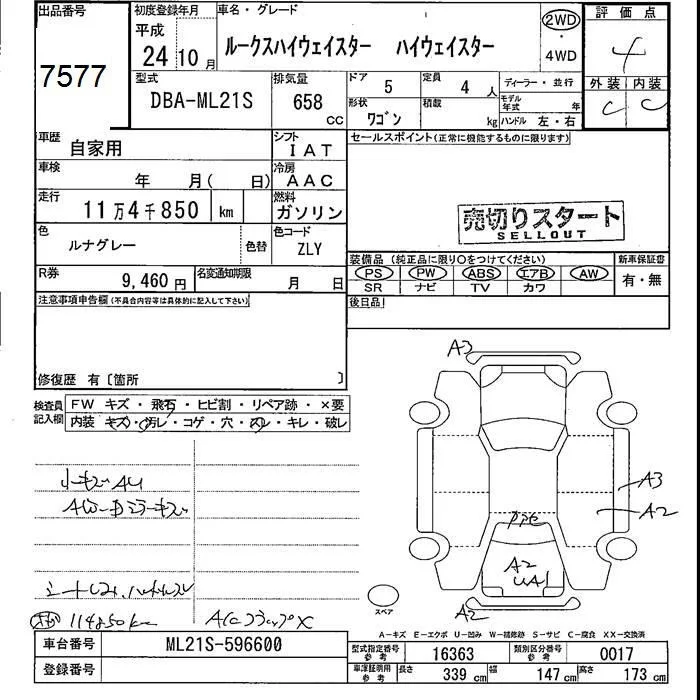 出品番号
7577
初度登録年月
平成
24 10 月
車名・グレード
ルークスハイウェイスター ハイウェイスター
2WD
・
4WD
評価点
4
外装 内装
C C
型式
DBA-ML21S
排気量
658 CC
ドア
5
定員
4 人
ディーラー・並行
形状
ワゴン
積載
kg
モデル年式 年
ハンドル 左・右
車歴
自家用
シフト
IAT
車検
年 月( 日)
冷房
AAC
走行
11万4千850 km
燃料
ガソリン
色
ルナグレー
色替
色コード
ZLY
R券
9,460 円
名変通知期限
月 日
セールスポイント(正常に機能するものに限ります)
売切りスタート
SELLOUT
装備品(純正品に限り○をつけてください)
新車保証書
PS PW ABS エアB AW
有・無
SR ナビ TV カワ
後日品
注意事項申告欄(不具合内容等は具体的に記入して下さい)
修復歴 有〔箇所 〕
検査員記入欄
FW キズ・飛石・ヒビ割・リペア跡・×要
内装 キズ・汚レ・コゲ・穴・スレ・キレ・破レ
小キズAU
シートしみ、ハンドルスレ
114850km
A/Cフラップ×
A3
A3
A2
A2
UA1
A2
スペア
A-キズ E-エクボ U-凹み W-補修跡 S-サビ C-腐食 XX-交換済
車台番号
ML21S-596600
登録番号
型式指定番号 参考
16363
類別区分番号 参考
0017
車庫証明用 参考
長さ 339 cm 幅 147 cm 高さ 173 cm